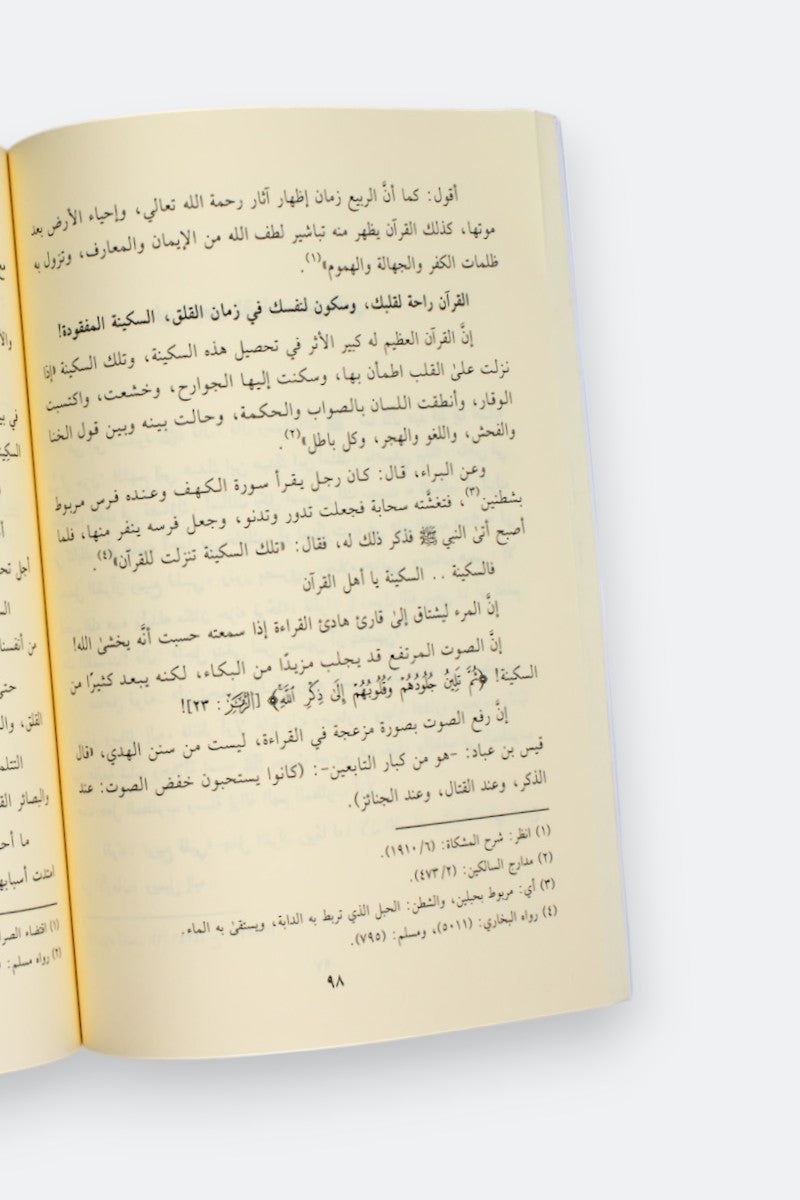 أقول: كما أنَّ الربيع زمان إظهار آثار رحمة الله تعالي، وإحياء الأرض بعد
موتها، كذلك القرآن يظهر منه تباشير لطف الله من الإيمان والمعارف، وتزول به
ظلمات الكفر والجهالة والهموم»(١).
القرآن راحة لقلبك، وسكون لنفسك في زمان القلق، السكينة المفقودة!
إنَّ القرآن العظيم له كبير الأثر في تحصيل هذه السكينة، وتلك السكينة «إذا
نزلت علىٰ القلب اطمأن بها، وسكنت إليها الجوارح، وخشعت، واكتسبت
الوقار، وأنطقت اللسان بالصواب والحكمة، وحالت بينه وبين قول الخنا
والفحش، واللغو والهجر، وكل باطل»(٢).
وعن البراء، قال: كان رجل يقرأ سورة الكهف وعنده فرس مربوط
بشطنين(٣)، فتغشَّته سحابة فجعلت تدور وتدنو، وجعل فرسه ينفر منها، فلما
أصبح أتىٰ النبي ﷺ فذكر ذلك له، فقال: «تلك السكينة تنزلت للقرآن»(٤).
فالسكينة .. السكينة يا أهل القرآن
إنَّ المرء ليشتاق إلىٰ قارئ هادئ القراءة إذا سمعته حسبت أنَّه يخشىٰ الله!
إنَّ الصوت المرتفع قد يجلب مزيدًا من البكاء، لكنه يبعد كثيرًا من
السكينة! ﴿ثُمَّ تَلِينُ جُلُودُهُمْ وَقُلُوبُهُمْ إِلَىٰ ذِكْرِ ٱللَّهِ﴾ [الزُّمَرِ : ٢٣]!
إنَّ رفع الصوت بصورة مزعجة في القراءة، ليست من سنن الهدي، «قال
قيس بن عباد: -هو من كبار التابعين-: (كانوا يستحبون خفض الصوت: عند
الذكر، وعند القتال، وعند الجنائز).
(١) انظر: شرح المشكاة: (٦/ ١٩١٠).
(٢) مدارج السالكين: (٢/ ٤٧٣).
(٣) أي: مربوط بحبلين، والشطن: الحبل الذي تربط به الدابة، ويستقىٰ به الماء.
(٤) رواه البخاري: (٥٠١١)، ومسلم: (٧٩٥).
٩٨
في
أجل
من أنفسنا
حتى
القلق،
ما
(١) اقتضاء
(٢) رواه مسلم: